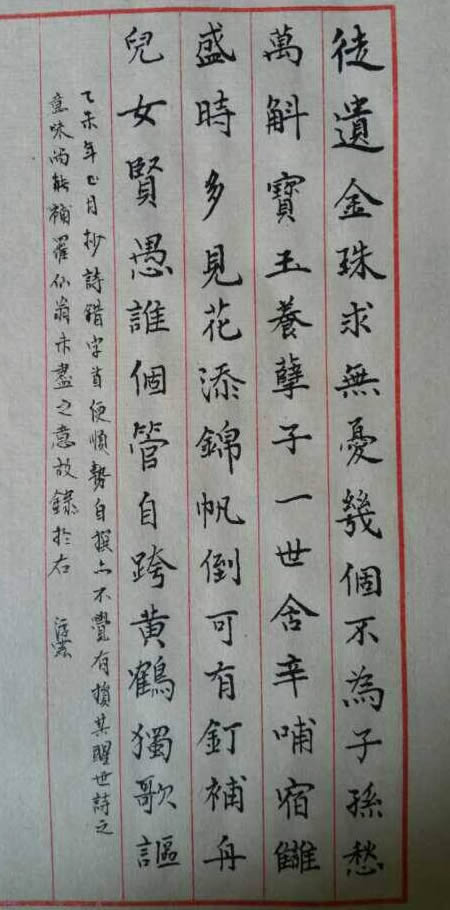 徒遺金珠求無憂幾個不為子孫愁
萬斛寶玉養孽子一世含辛哺宿讎
盛時多見花添錦帆倒可有釘補舟
兒女賢愚誰個管自跨黃鶴獨歌謳
乙未年正月抄詩錯字首便順勢自撰上不覺有損其醒世詩之
意味而能補羅仙翁未盡之意故錄於右